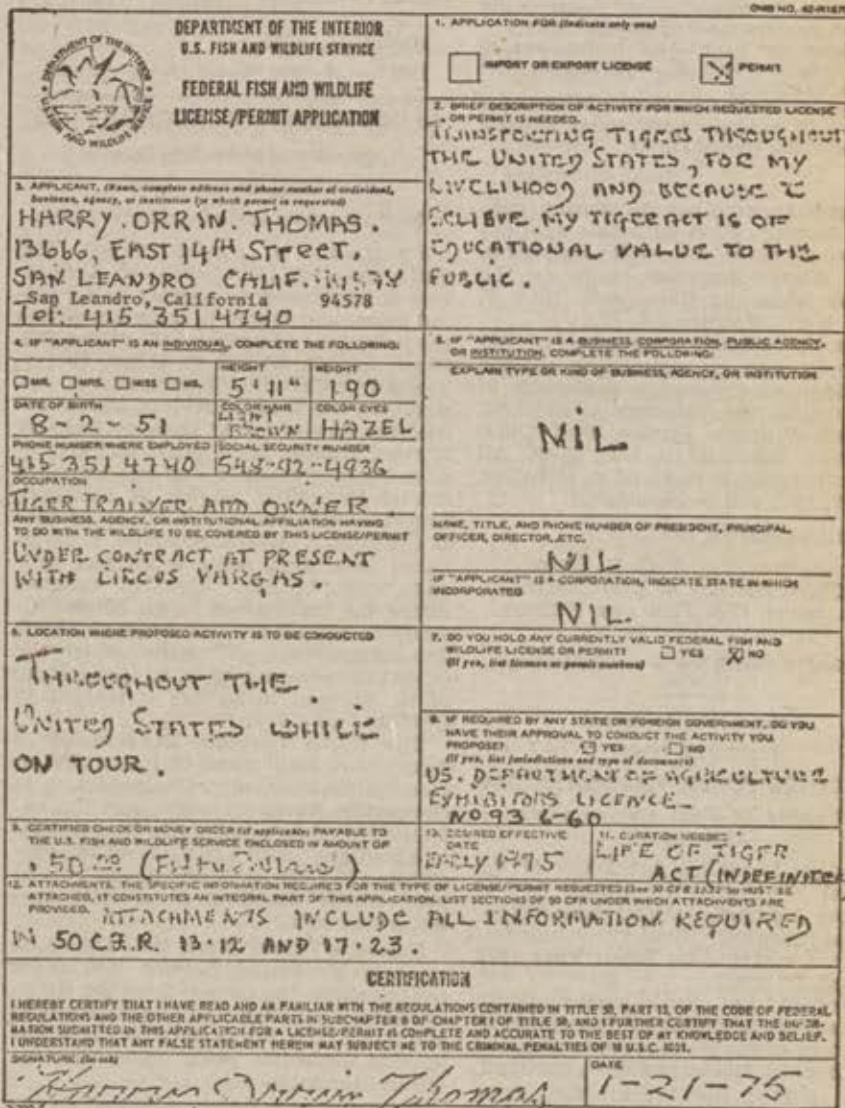 OMB NO. 42-R1670
DEPARTMENT OF THE INTERIOR
U.S. FISH AND WILDLIFE SERVICE
FEDERAL FISH AND WILDLIFE
LICENSE/PERMIT APPLICATION
DEPARTMENT OF THE INTERIOR
U.S. FISH AND WILDLIFE SERVICE
1. APPLICATION FOR (Indicate only one)
IMPORT OR EXPORT LICENSE
PERMIT
2. BRIEF DESCRIPTION OF ACTIVITY FOR WHICH REQUESTED LICENSE
OR PERMIT IS NEEDED.
TRANSPORTING TIGERS THROUGHOUT
THE UNITED STATES, FOR MY
LIVELIHOOD AND BECAUSE I
BELIEVE MY TIGER ACT IS OF
EDUCATIONAL VALUE TO THE
PUBLIC.
3. APPLICANT. (Name, complete address and phone number of individual,
business, agency, or institution for which permit is requested)
HARRY. ORRIN. THOMAS.
13666, EAST 14TH STREET.
SAN LEANDRO CALIF. 94578
San Leandro, California 94578
Tel: 415 351 4740
4. IF "APPLICANT" IS AN INDIVIDUAL, COMPLETE THE FOLLOWING:
MR. MRS. MISS MS.
HEIGHT
5' 11"
WEIGHT
190
DATE OF BIRTH
8-2-51
COLOR HAIR
LIGHT
BROWN
COLOR EYES
HAZEL
PHONE NUMBER WHERE EMPLOYED
415 351 4740
SOCIAL SECURITY NUMBER
548-92-4936
OCCUPATION
TIGER TRAINER AND OWNER
ANY BUSINESS, AGENCY, OR INSTITUTIONAL AFFILIATION HAVING
TO DO WITH THE WILDLIFE TO BE COVERED BY THIS LICENSE/PERMIT
UNDER CONTRACT AT PRESENT
WITH CIRCUS VARGAS.
5. IF "APPLICANT" IS A BUSINESS, CORPORATION, PUBLIC AGENCY,
OR INSTITUTION, COMPLETE THE FOLLOWING:
EXPLAIN TYPE OR KIND OF BUSINESS, AGENCY, OR INSTITUTION
NIL
NAME, TITLE, AND PHONE NUMBER OF PRESIDENT, PRINCIPAL
OFFICER, DIRECTOR, ETC.
NIL
IF "APPLICANT" IS A CORPORATION, INDICATE STATE IN WHICH
INCORPORATED
NIL.
6. LOCATION WHERE PROPOSED ACTIVITY IS TO BE CONDUCTED
THROUGHOUT THE
UNITED STATES WHILE
ON TOUR.
7. DO YOU HOLD ANY CURRENTLY VALID FEDERAL FISH AND
WILDLIFE LICENSE OR PERMIT? YES NO
(If yes, list license or permit numbers)
8. IF REQUIRED BY ANY STATE OR FOREIGN GOVERNMENT, DO YOU
HAVE THEIR APPROVAL TO CONDUCT THE ACTIVITY YOU
PROPOSE? YES NO
(If yes, list jurisdictions and type of documents)
US. DEPARTMENT OF AGRICULTURE
EXHIBITORS LICENCE
NO 93 6-60
9. CERTIFIED CHECK OR MONEY ORDER (if applicable) PAYABLE TO
THE U.S. FISH AND WILDLIFE SERVICE ENCLOSED IN AMOUNT OF
50.00
10. DESIRED EFFECTIVE
DATE
EARLY 1975
11. DURATION NEEDED
LIFE OF TIGER
ACT (INDEFINITE
12. ATTACHMENTS. THE SPECIFIC INFORMATION REQUIRED FOR THE TYPE OF LICENSE/PERMIT REQUESTED (See 50 CFR 13.12(b)) MUST BE
ATTACHED, IT CONSTITUTES AN INTEGRAL PART OF THIS APPLICATION. LIST SECTIONS OF 50 CFR UNDER WHICH ATTACHMENTS ARE
PROVIDED. ATTACHMENTS INCLUDE ALL INFORMATION REQUIRED
IN 50 C.F.R. 13.12 AND 17.23.
CERTIFICATION
I HEREBY CERTIFY THAT I HAVE READ AND AM FAMILIAR WITH THE REGULATIONS CONTAINED IN TITLE 50, PART 13, OF THE CODE OF FEDERAL
REGULATIONS AND THE OTHER APPLICABLE PARTS IN SUBCHAPTER B OF CHAPTER I OF TITLE 50, AND I FURTHER CERTIFY THAT THE INFOR-
MATION SUBMITTED IN THIS APPLICATION FOR A LICENSE/PERMIT IS COMPLETE AND ACCURATE TO THE BEST OF MY KNOWLEDGE AND BELIEF.
I UNDERSTAND THAT ANY FALSE STATEMENT HEREIN MAY SUBJECT ME TO THE CRIMINAL PENALTIES OF 18 U.S.C. 1001.
SIGNATURE (In ink)
Harry Orrin Thomas
DATE
1-21-75